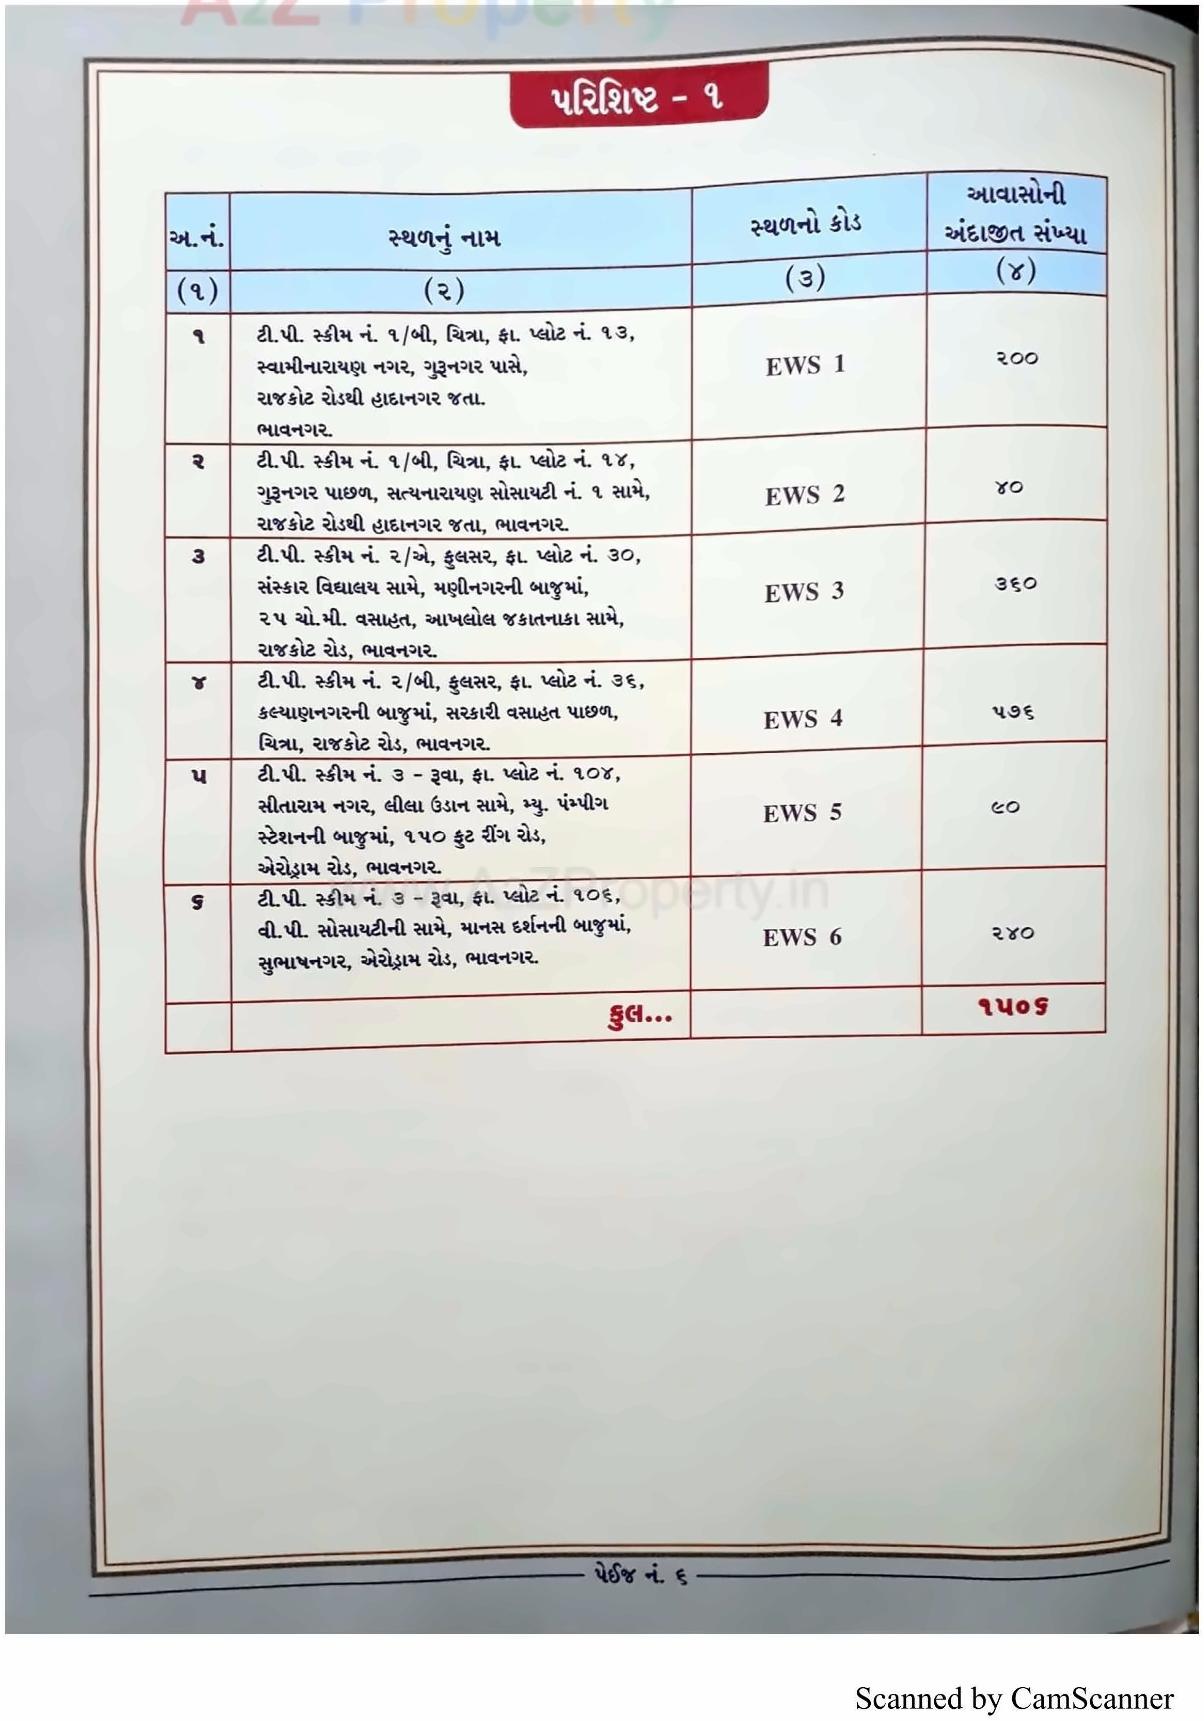 A2Z Property
પરિશિષ્ટ - ૧
અ.નં.
સ્થળનું નામ
સ્થળનો કોડ
આવાસોની
અંદાજીત સંખ્યા
(૧)
(૨)
(૩)
(૪)
૧
ટી.પી. સ્કીમ નં. ૧/બી, ચિત્રા, ફા. પ્લોટ નં. ૧૩,
સ્વામીનારાયણ નગર, ગુરૂનગર પાસે,
રાજકોટ રોડથી હાદાનગર જતા.
ભાવનગર.
EWS 1
૨૦૦
૨
ટી.પી. સ્કીમ નં. ૧/બી, ચિત્રા, ફા. પ્લોટ નં. ૧૪,
ગુરૂનગર પાછળ, સત્યનારાયણ સોસાયટી નં. ૧ સામે,
રાજકોટ રોડથી હાદાનગર જતા, ભાવનગર.
EWS 2
૪૦
૩
ટી.પી. સ્કીમ નં. ૨/એ, ફુલસર, ફા. પ્લોટ નં. ૩૦,
સંસ્કાર વિદ્યાલય સામે, મણીનગરની બાજુમાં,
૨૫ ચો.મી. વસાહત, આખલોલ જકાતનાકા સામે,
રાજકોટ રોડ, ભાવનગર.
EWS 3
૩૬૦
૪
ટી.પી. સ્કીમ નં. ૨/બી, ફુલસર, ફા. પ્લોટ નં. ૩૬,
કલ્યાણનગરની બાજુમાં, સરકારી વસાહત પાછળ,
ચિત્રા, રાજકોટ રોડ, ભાવનગર.
EWS 4
૫૭૬
૫
ટી.પી. સ્કીમ નં. ૩ - રૂવા, ફા. પ્લોટ નં. ૧૦૪,
સીતારામ નગર, લીલા ઉડાન સામે, મ્યુ. પંમ્પીગ
સ્ટેશનની બાજુમાં, ૧૫૦ ફુટ રીંગ રોડ,
એરોડ્રામ રોડ, ભાવનગર.
EWS 5
૯૦
www.A2ZProperty.in
૬
ટી.પી. સ્કીમ નં. ૩ - રૂવા, ફા. પ્લોટ નં. ૧૦૬,
વી.પી. સોસાયટીની સામે, માનસ દર્શનની બાજુમાં,
સુભાષનગર, એરોડ્રામ રોડ, ભાવનગર.
EWS 6
૨૪૦
કુલ...
૧૫૦૬
પેઈજ નં. ૬
Scanned by CamScanner